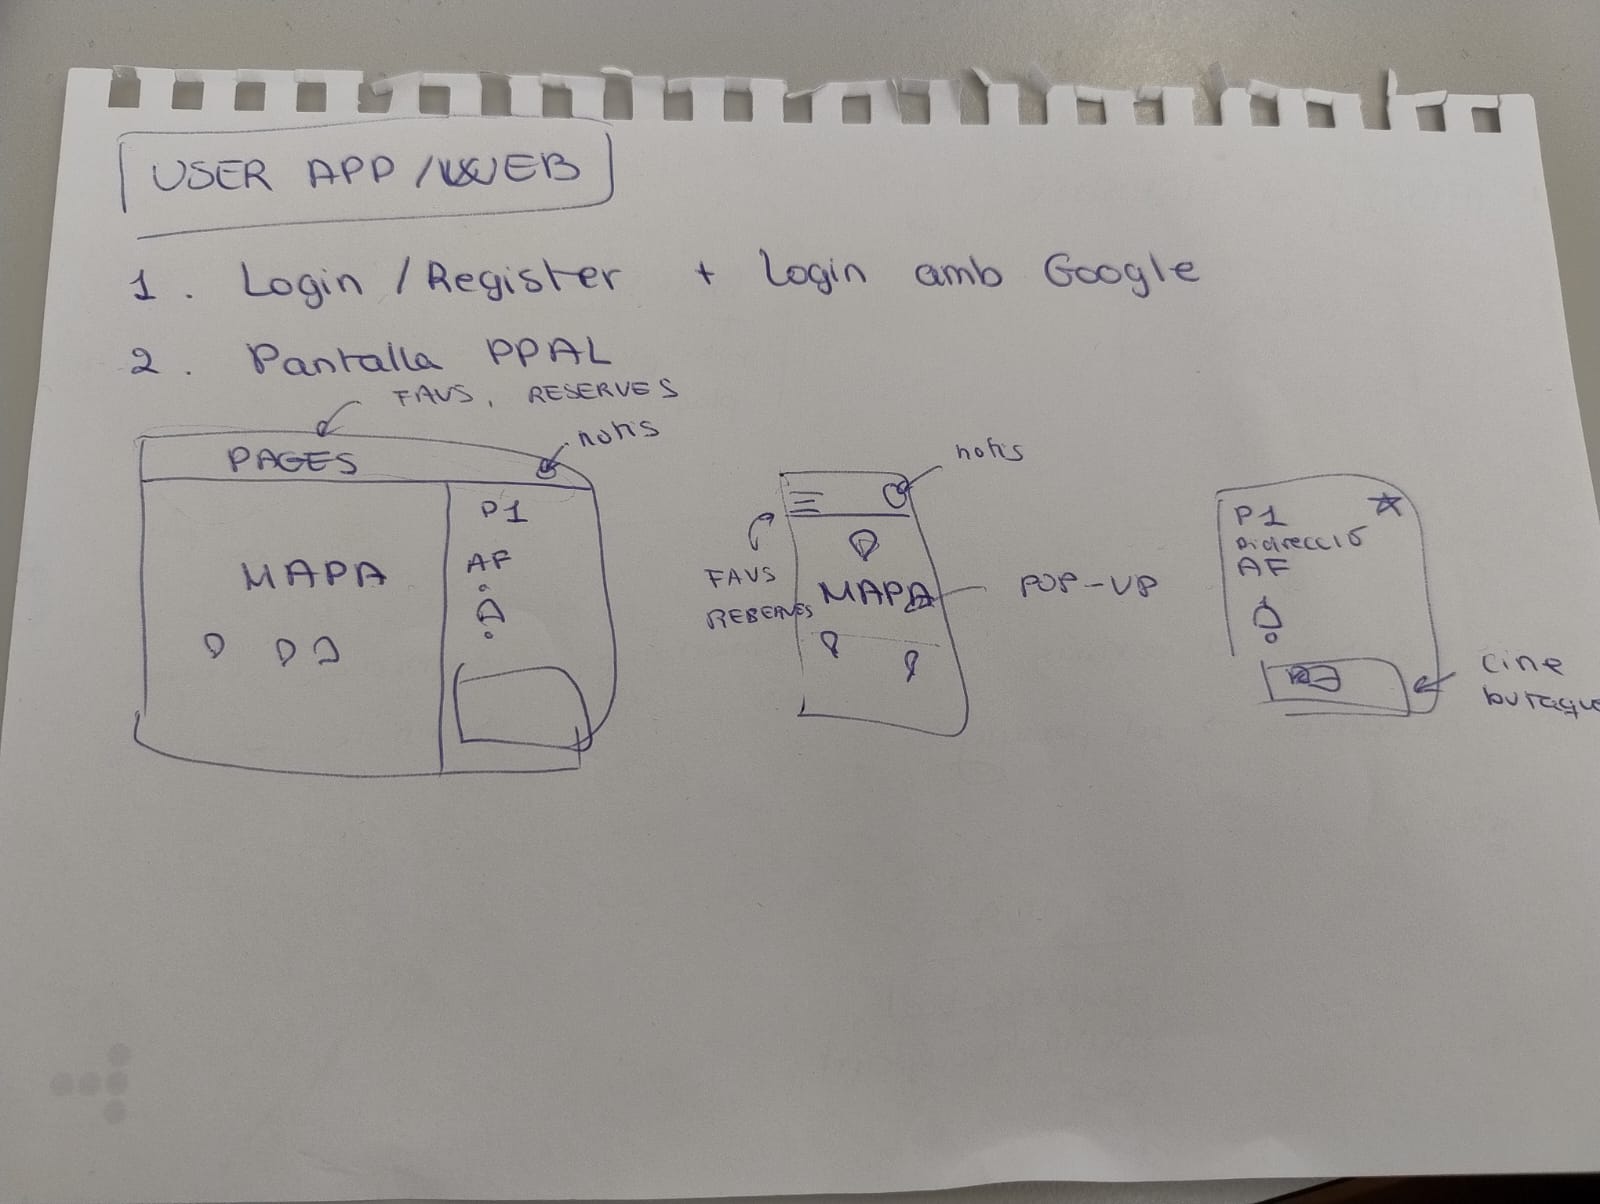 USER APP / WEB
1. Login / Register + Login amb Google
2. Pantalla PPAL
FAVS, RESERVES
notis
PAGES
MAPA
P1
AF
notis
FAVS
RESERVES
MAPA
POP-UP
P1
AF
cine